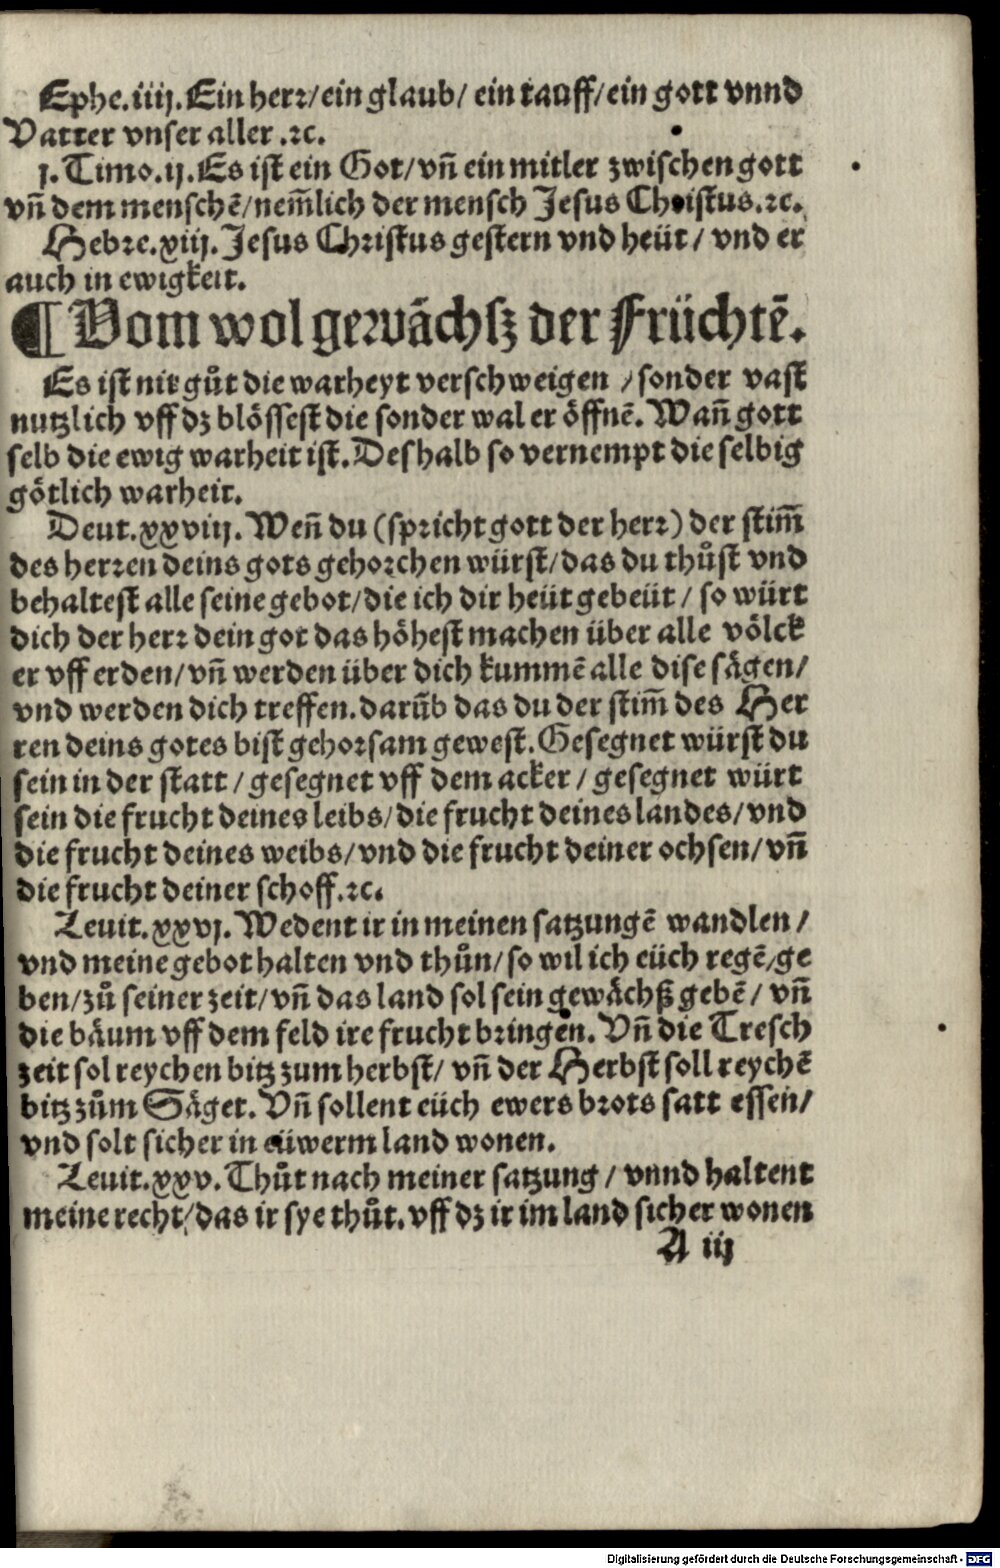 Ephe.iiij.Ein herr/ein glaub/ ein tauff/ein gott vnnd
Vatter vnser aller .ꝛc.
j.Timo.ij.Es ist ein Got/vn̄ ein mitler zwischen gott
vn̄ dem menschē/nem̄lich der mensch Jesus Christus.ꝛc.
Hebre.xiij.Jesus Christus gestern vnd heüt/ vnd er
auch in ewigkeit.
¶ Vom wol gewächsz der Früchtē.
Es ist nit gůt die warheyt verschweigen /sonder vast
nutzlich vff dz blössest die sonder wal er öffnē. Wan̄ gott
selb die ewig warheit ist.Deshalb so vernempt die selbig
götlich warheit.
Deut.xxviij. Wen̄ du (spricht gott der herr) der stim̄
des herren deins gots gehorchen würst/das du thůst vnd
behaltest alle seine gebot/die ich dir heüt gebeüt / so würt
dich der herr dein got das höhest machen über alle völck
er vff erden/vn̄ werden über dich kummē alle dise sägen/
vnd werden dich treffen.darūb das du der stim̄ des Her
ren deins gotes bist gehorsam gewest.Gesegnet würst du
sein in der statt / gesegnet vff dem acker / gesegnet würt
sein die frucht deines leibs/die frucht deines landes/vnd
die frucht deines weibs/vnd die frucht deiner ochsen/vn̄
die frucht deiner schoff.ꝛc.
Leuit.xxvj. Wedent ir in meinen satzungē wandlen /
vnd meine gebot halten vnd thůn/so wil ich eüch regē/ge
ben/zů seiner zeit/vn̄ das land sol sein gewächß gebē/ vn̄
die bäum vff dem feld ire frucht bringen. Vn̄ die Tresch
zeit sol reychen bitz zum herbst/ vn̄ der Herbst soll reychē
bitz zům Säget. Vn̄ sollent eüch ewers brots satt essen/
vnd solt sicher in eüwerm land wonen.
Leuit.xxv. Thůt nach meiner satzung / vnnd haltent
meine recht/das ir sye thůt.vff dz ir im land sicher wonen
A iij
Digitalisierung gefördert durch die Deutsche Forschungsgemeinschaft - DFG